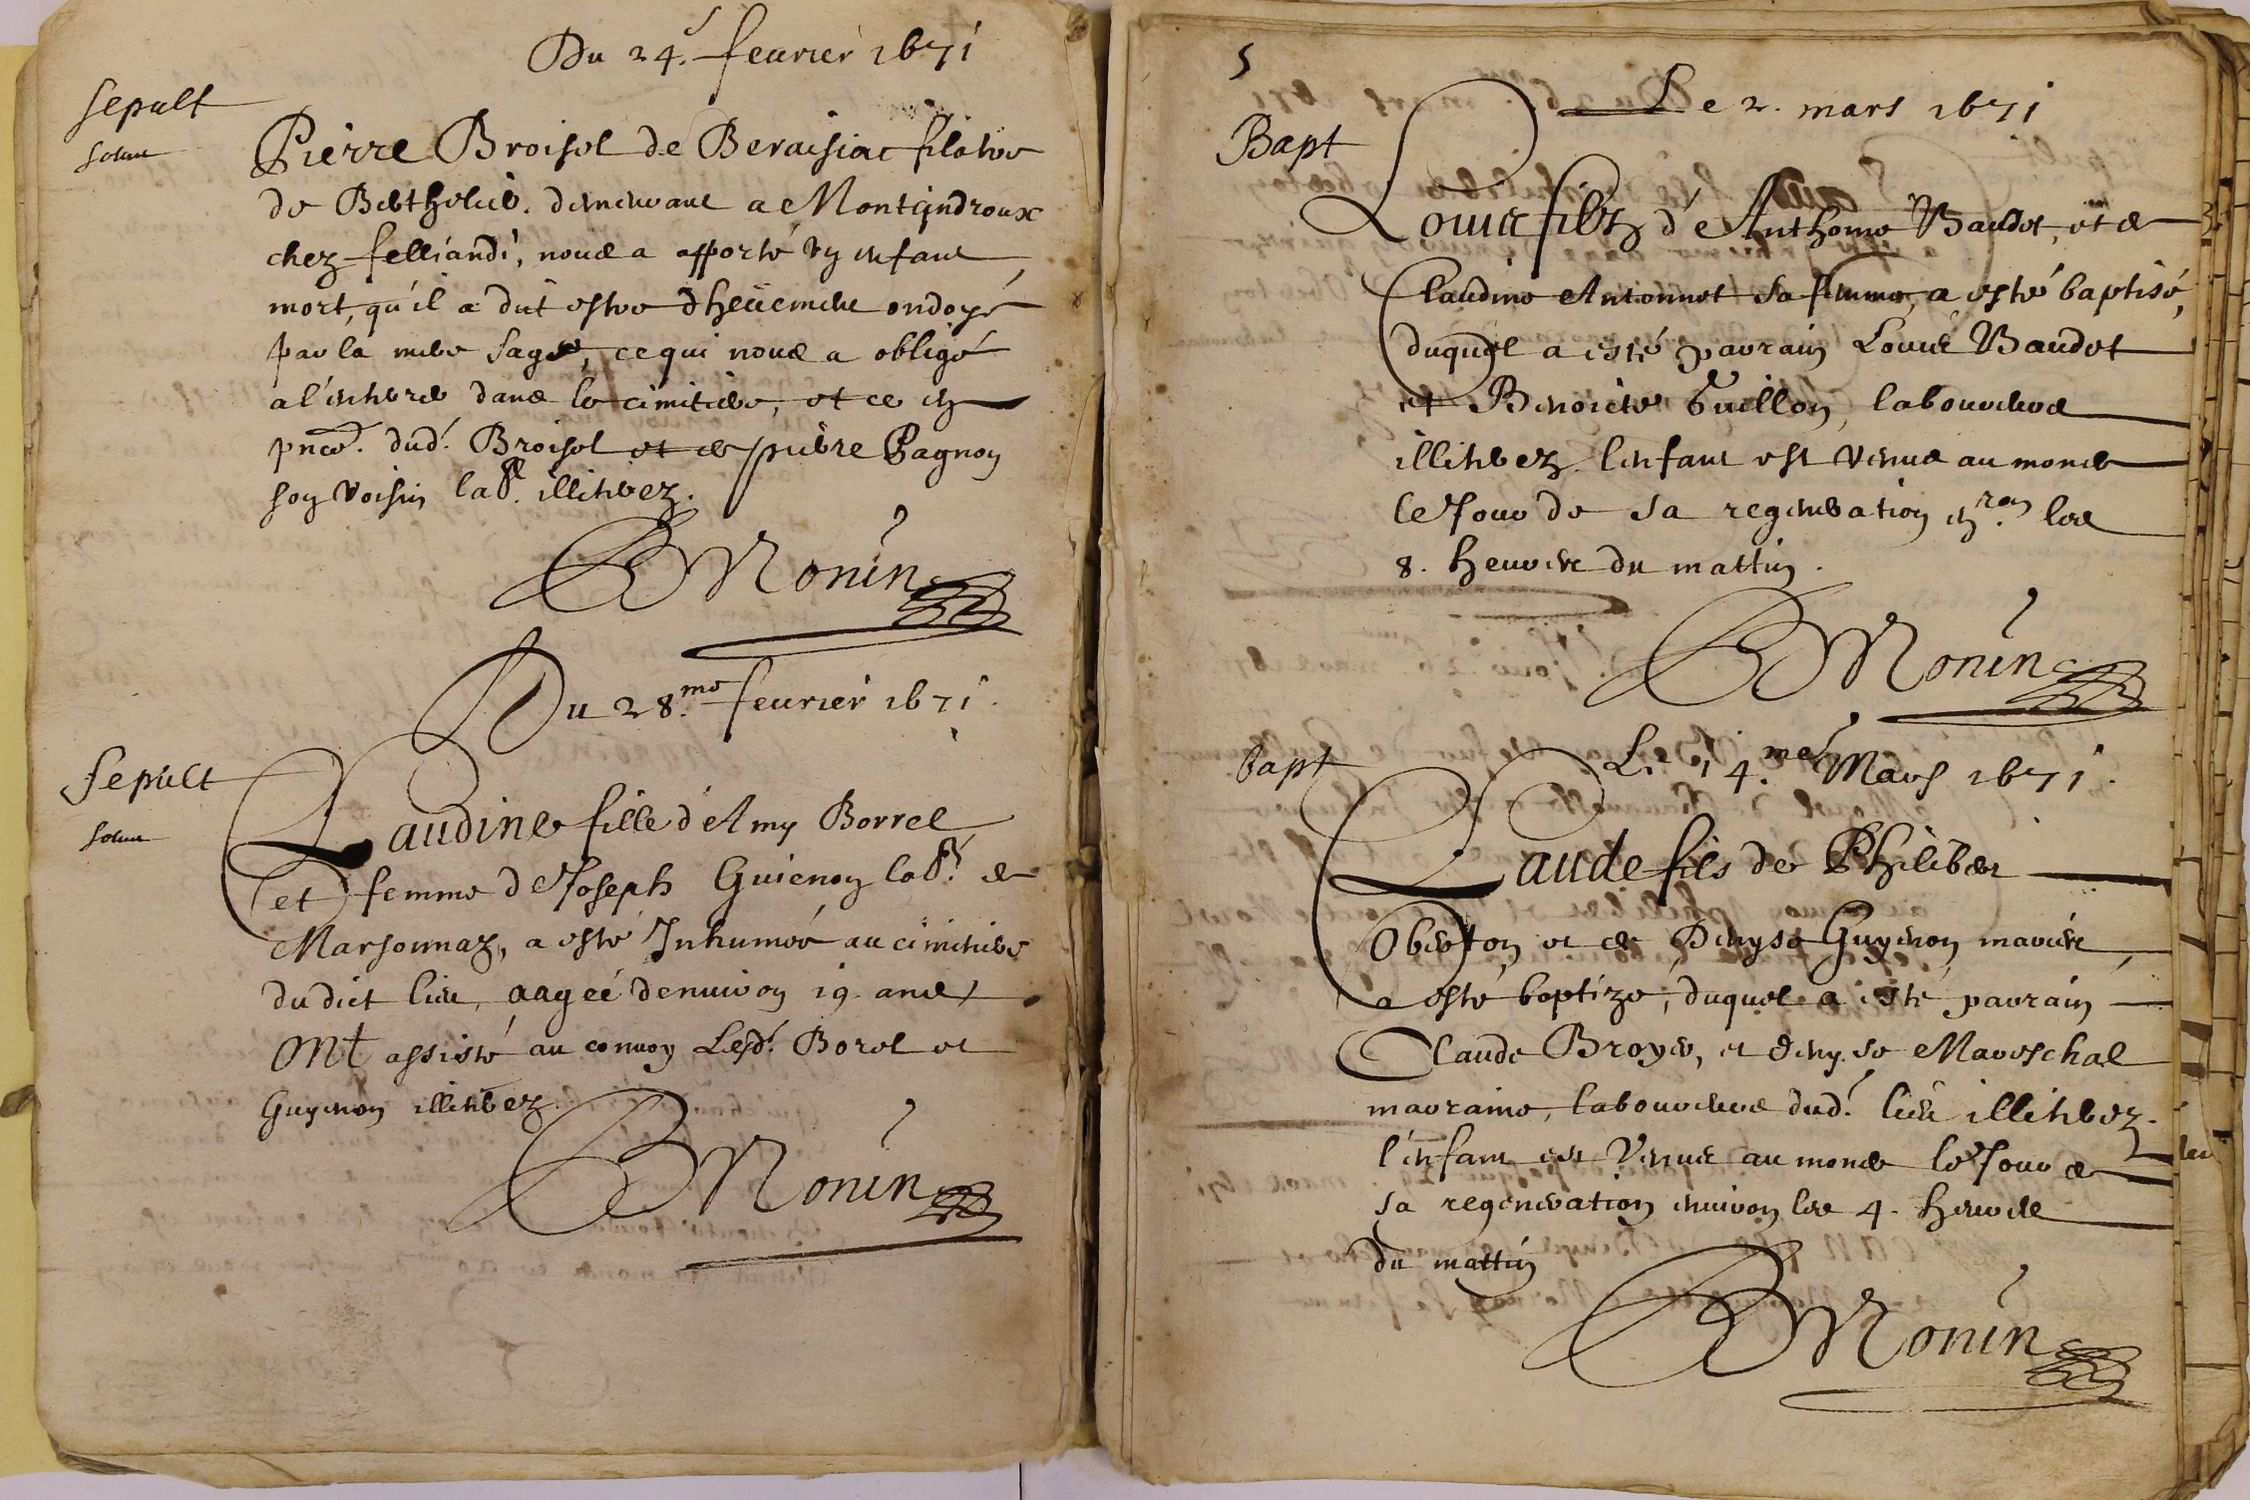 Du 24.e feurier 1671
Sepult
solut
Pierre Broisol de Beraisiat
de demeurant a Montgindroux
chez felliandi, nous a apporté vn enfant
mort, qu'il a dit estre ondoyé
par la mere sage, ce qui nous a obligé
a l'enterre dans le cimitiere, et ce en
pnce. dud. Broisol et de pierre Pagnon
son voisin lab. illiterez.
BNonin
Du 28.me feurier 1671.
Sepult
solut
Claudine fille d'Amy Borrel
et femme de Joseph Guienon labr. de
Marsonnaz, a esté Inhumée au cimitiere
du dict lieu, aagée denuiron 19 ans,
ont assisté au conuoy Lesd. Borel et
Guyenon illiterez.
BNonin
5
Le 2. mars 1671
Bapt
Louis filz d'Anthoine Baudet, et de
Claudine Antonnet sa femme, a esté baptisé,
duquel a esté parrain Louis Baudet
et Benoiste Guillon, laboureurs
illiterez. l'enfant est venus au monde
le Jour de sa regeneration enron les
8. heures du mattin.
BNonin
Bapt
Le 14.me Mars 1671.
Claude fils de Philiber
Oberton et de Denyse Guyenon mariés,
a esté baptizé, duquel a esté parrain
Claude Broyer, et Denyse Mareschal
marraine, laboureurs dud. lieu illiterez.
l'enfant est Venus au monde le Jour de
sa regeneration enuiron les 4. heures
du mattin
BNonin